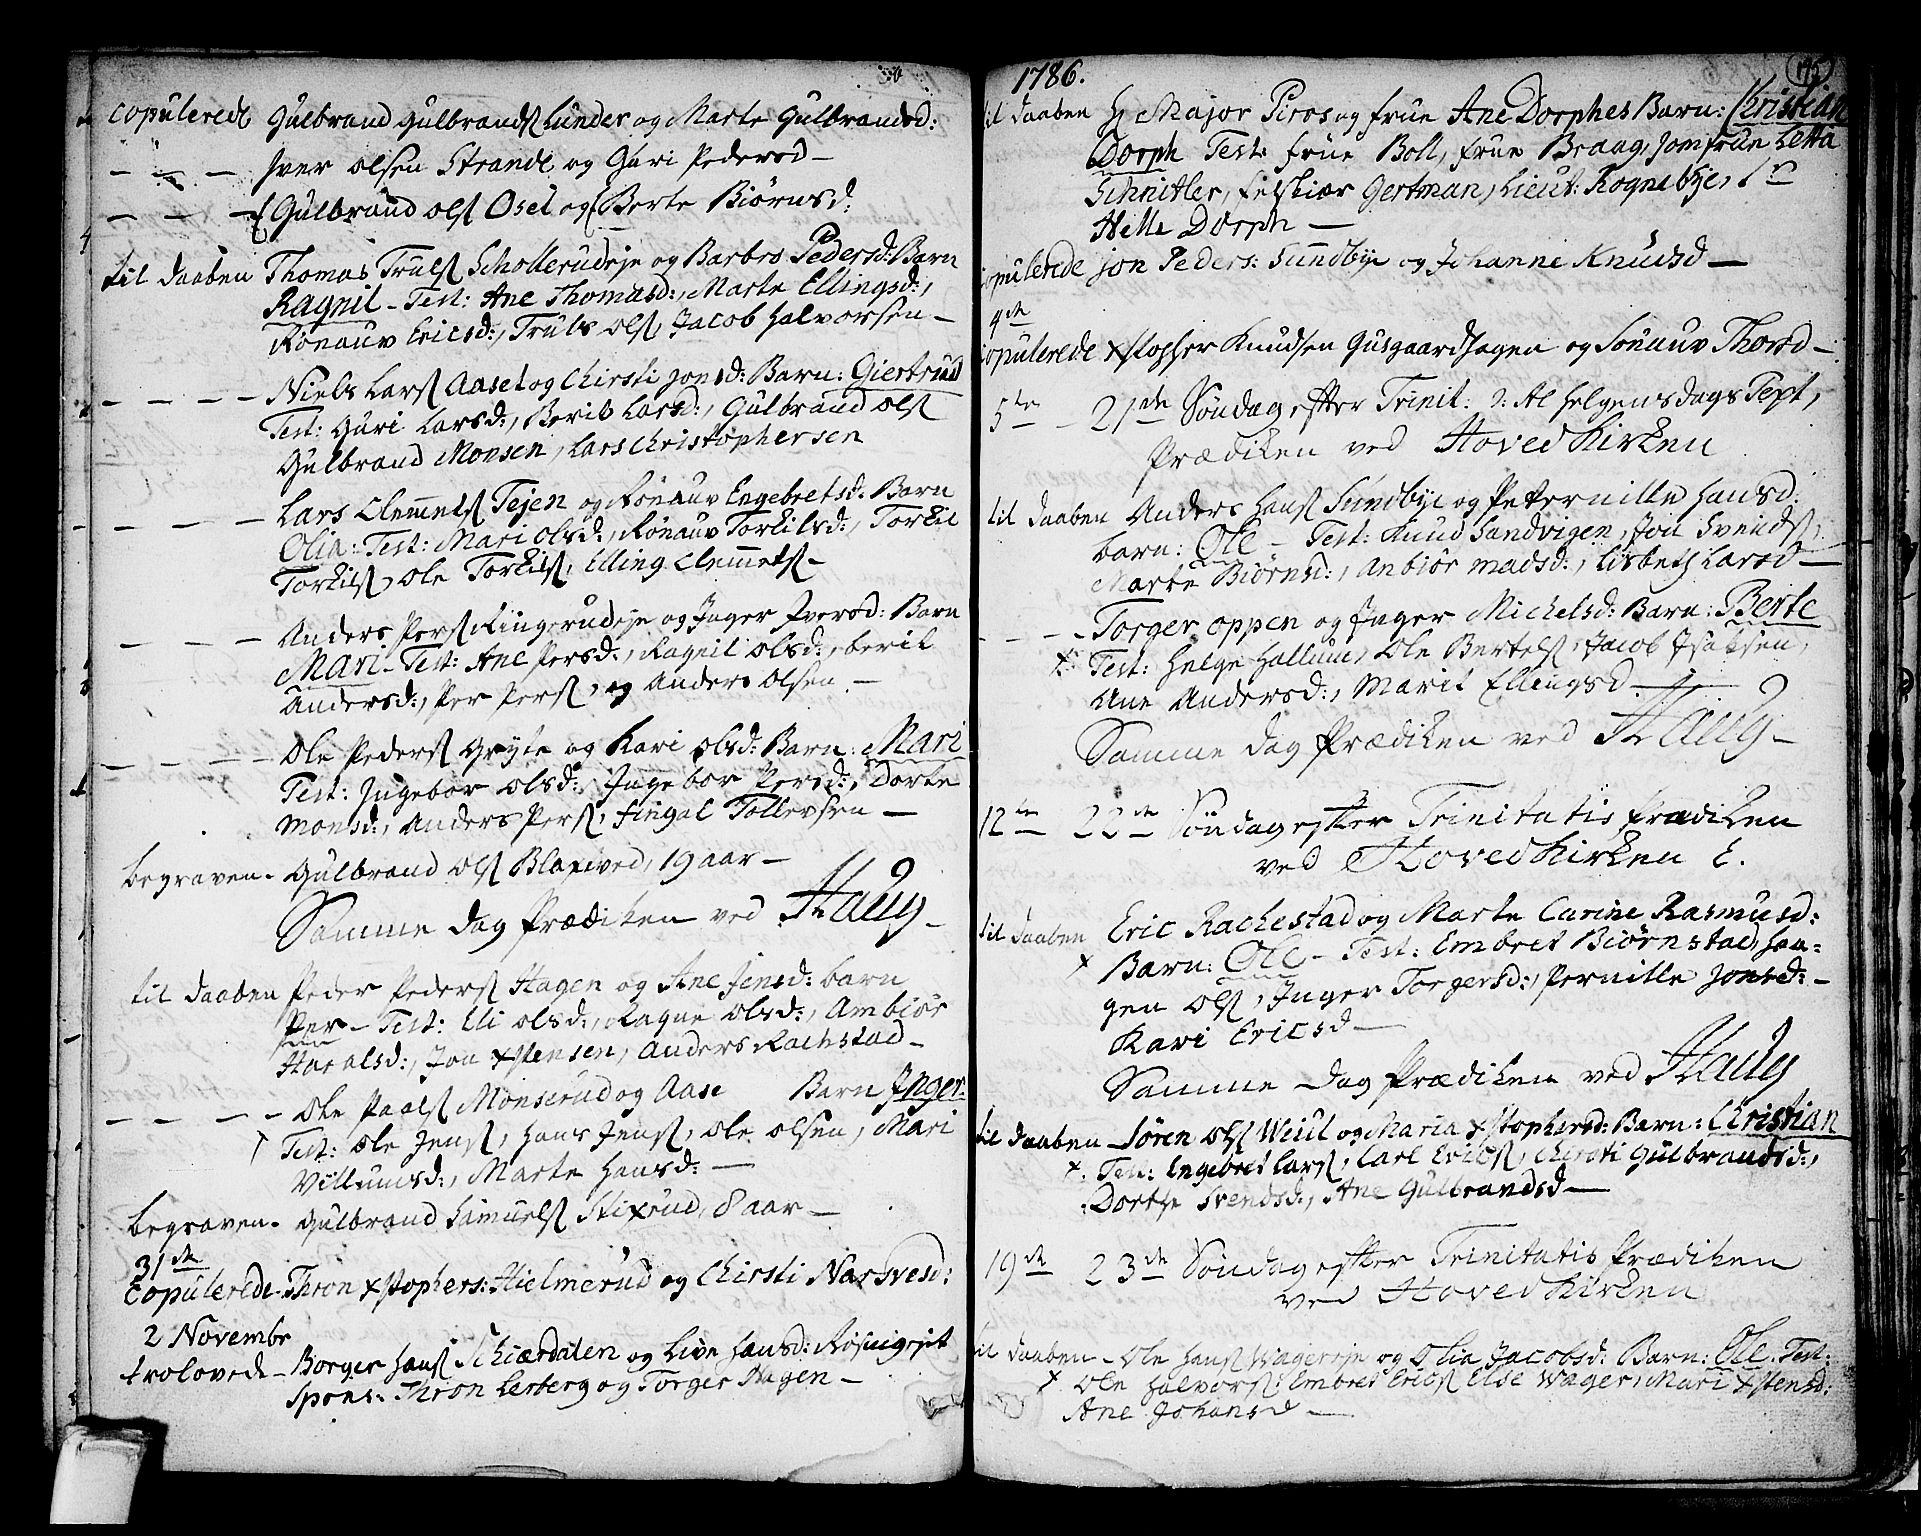 copulerede Gulbrand Gulbrands Lunder og Marte Gulbrandsd:
— — — Iver Olsen Strande og Guri Pedersd —
— — — Gulbrand Ols Osel og Berte Biørnsd:
til daaben Thomas Truls Schollerudeje og Barbro Pedersd: Barn
Ragnil — Test: Ane Thomasd:, Marte Ellingsd:,
Rönauv Ericsd:, Truls Ols, Jacob Halvorsen —
— — — — Niels Lars Aaset og Chirsti Jonsd: Barn: Giertrud
Test: Guri Larsd:, Berit Larsd:, Gulbrand Ols
Gulbrand Monsen, Lars Christophersen
— — — — Lars Clemmets Tejen og Rönauv Engebretsd: Barn
Olia: Test: Mari Olsd:, Rönauv Torkilsd:, Torkil
Torkils, Ole Torkils, Elling Clemmets —
— — — — Anders Pers Ringerudeje og Inger Iversd: Barn
Mari — Test: Ane Persd:, Ragnil Olsd:, Berit
Andersd:, Per Pers, og Anders Olsen —
— — — — Ole Peders Gryte og Kari Olsd: Barn: Mari
Test: Ingebor Olsd:, Ingebor Persd:, Dorte
Monsd:, Anders Pers, Fingal Tollevsen —
begraven. Gulbrand Ols Blaxived, 19 aar —
Samme Dag Prædiken ved Haug —
til daaben Peder Peders Hagen og Ane Jensd: barn
Per — Test: Eli Olsd:, Ragne Olsd:, Ambiör
Haralsd:, Jon Xstensen, Anders Rachstad —
— — — — Ole Paals Monserud og Aase Barn Inger:
Test: Ole Jens, Hans Jens, Ole Olsen, Mari
Villumsd:, Marte Hansd: —
begraven. Gulbrand Samuels Stixrud, 8 aar —
31te
Copulerede Thron Xstophers: Hielmerud og Chirsti Narvesd:
2 Novembr
trolovede — Borger Hans Skiærdalen og Live Hansd:
Spons: Thron Lerberg og Torger Hagen —
1786.
til daaben H Major Piros og frue Ane Dorphes Barn: Christian
Dorph Test: frue Boll, frue Braag, Jomfrue Letta
Schnitler, Feltskiær Gertman, Lieut: Rognebye,
Hille Dorph —
copulerede Jon Peders: Sundbye og Johanne Knudsd —
4de
copulerede Xstopher Knudsen Gusgaardhagen og Sönauv Thorsd —
5te — 21de Söndag efter Trinit: : Al Helgensdags Text,
Prædiken ved Hoved Kirken
til daaben Anders Hans Sundbye og Petternille Hansd:
barn: Ole — Test: Knud Sandvigen, Jon Svends,
Marte Biörnsd:, Anbiör Madsd:, Lisbeth Larsd —
— — — — Torger Oppen og Inger Michelsd: Barn: Berte
Test: Helge Hallum, Ole Bertels, Jacob Isaksen,
Ane Andersd:, Marit Ellingsd. —
Samme Dag Prædiken ved Haug —
12te 22de Söndag efter Trinitatis Prædiken
ved Hoved Kirken
til daaben Eric Rachestad og Marte Carine Rasmusd:
x Barn: Ole — Test: Embret Biørnstad, Haa-
gen Ols, Inger Torgersd:, Pernille Jonsd: —
Kari Ericsd —
Samme Dag Prædiken ved Haug
til daaben — Sören Ols Weiul og Maria Xstophersd: Barn: Christian
x. Test: Engebret Lars, Carl Erics, Chirsti Gulbrandsd:,
Dorthe Svendsd:, Ane Gulbrandsd —
19de 23de Söndag efter Trinitatis Prædiken
ved Hoved Kirken
til daaben — Ole Hans Wagereje og Olia Jacobsd: Barn: Ole. Test:
x Ole Halvors, Embret Erics, Else Wager, Mari Xstensd:
Ane Johansd —